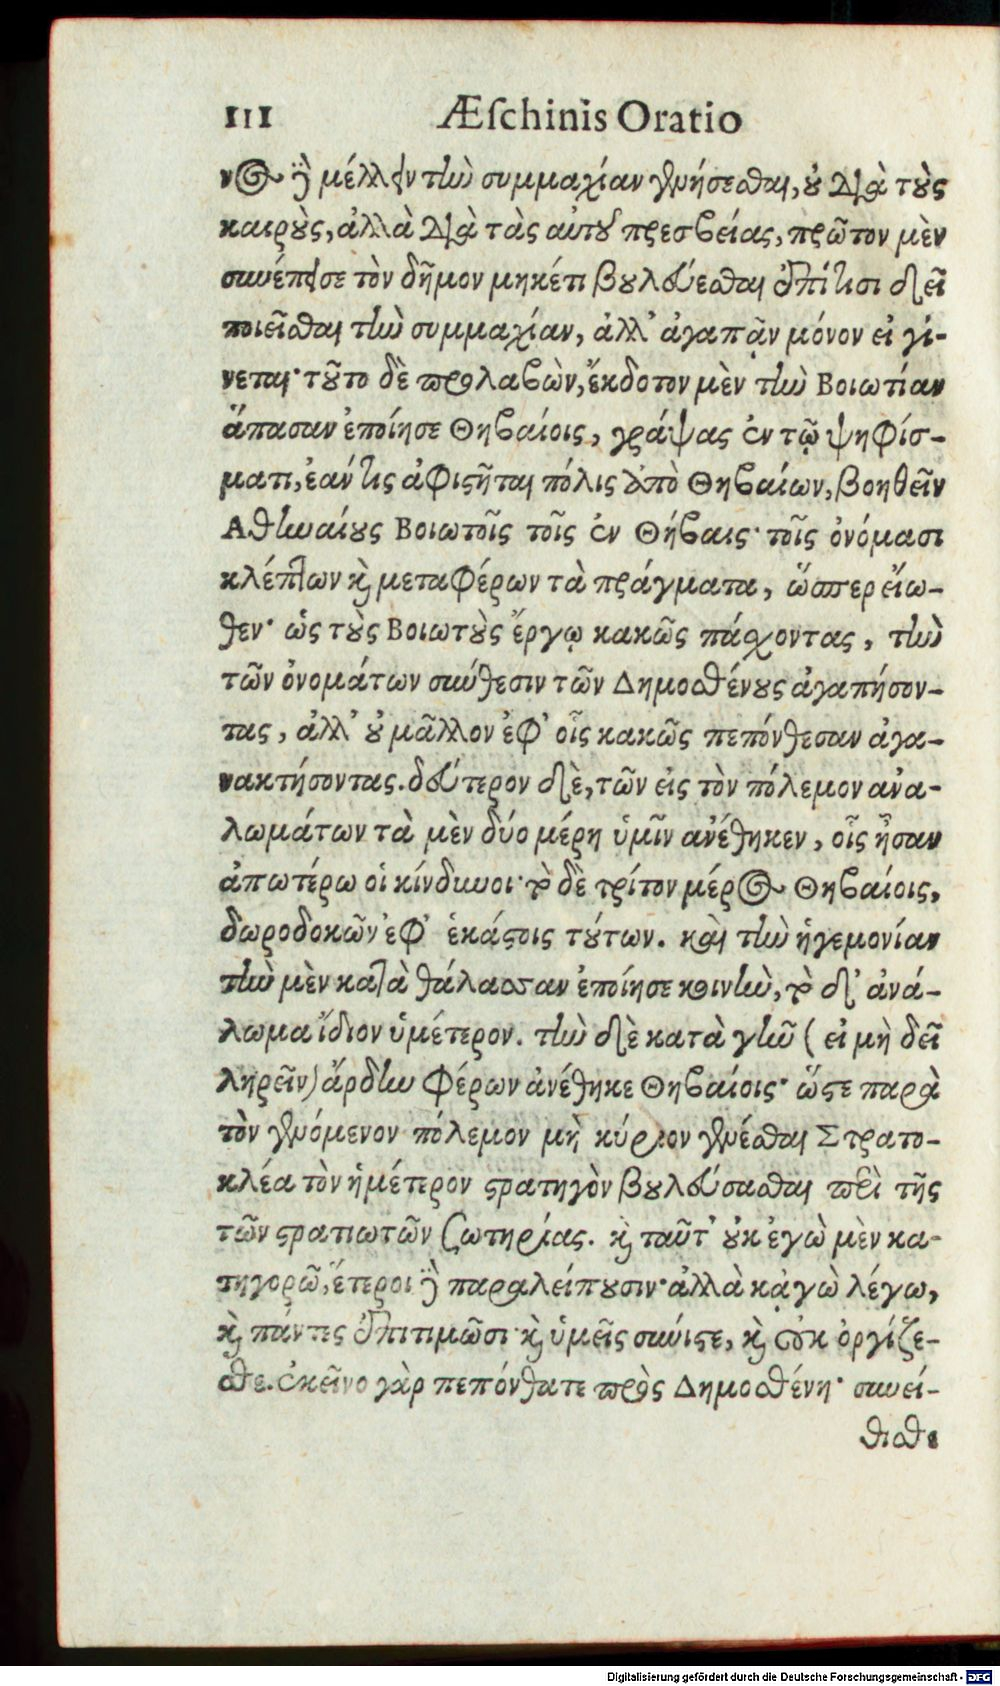 111 Æſchinis Oratio
νος δὲ μέλλειν τὴν συμμαχίαν γενήσεσθαι, οὐ διὰ τοὺς
καιροὺς, ἀλλὰ διὰ τὰς αὑτοῦ πρεσβείας, πρῶτον μὲν
συνέπεισε τὸν δῆμον μηκέτι βουλεύεσθαι ἐπὶ τίσι δεῖ
ποιεῖσθαι τὴν συμμαχίαν, ἀλλ’ ἀγαπᾷν μόνον εἰ γί-
νεται· τοῦτο δὲ προλαβὼν, ἔκδοτον μὲν τὴν Βοιωτίαν
ἅπασαν ἐποίησε Θηβαίοις, γράψας ἐν τῷ ψηφίσ-
ματι, ἐάν τις ἀφιστῆται πόλις ἀπὸ Θηβαίων, βοηθεῖν
Αθηναίους Βοιωτοῖς τοῖς ἐν Θήβαις· τοῖς ὀνόμασι
κλέπτων καὶ μεταφέρων τὰ πράγματα, ὥσπερ εἴω-
θεν· ὡς τοὺς Βοιωτοὺς ἔργῳ κακῶς πάσχοντας, τὴν
τῶν ὀνομάτων σύνθεσιν τῶν Δημοσθένους ἀγαπήσον-
τας, ἀλλ’ οὐ μᾶλλον ἐφ’ οἷς κακῶς πεπόνθεσαν ἀγα-
νακτήσοντας. δεύτερον δὲ, τῶν εἰς τὸν πόλεμον ἀνα-
λωμάτων τὰ μὲν δύο μέρη ὑμῖν ἀνέθηκεν, οἷς ἦσαν
ἀπωτέρω οἱ κίνδυνοι· τὸ δὲ τρίτον μέρος Θηβαίοις,
δωροδοκῶν ἐφ’ ἑκάστοις τούτων. καὶ τὴν ἡγεμονίαν
τὴν μὲν κατὰ θάλασσαν ἐποίησε κοινὴν, τὸ δ’ ἀνά-
λωμα ἴδιον ὑμέτερον. τὴν δὲ κατὰ γῆν (εἰ μὴ δεῖ
ληρεῖν) ἄρδην φέρων ἀνέθηκε Θηβαίοις· ὥστε παρὰ
τὸν γενόμενον πόλεμον μὴ κύριον γενέσθαι Στρατο-
κλέα τὸν ἡμέτερον στρατηγὸν βουλεύσασθαι περὶ τῆς
τῶν στρατιωτῶν σωτηρίας. καὶ ταῦτ’ οὐκ ἐγὼ μὲν κα-
τηγορῶ, ἕτεροι δὲ παραλείπουσιν· ἀλλὰ κᾀγὼ λέγω,
καὶ πάντες ἐπιτιμῶσι· καὶ ὑμεῖς σύνιστε, καὶ οὐκ ὀργίζε-
σθε. ἐκεῖνο γὰρ πεπόνθατε πρὸς Δημοσθένη· συνεί-
θισθε
Digitalisierung gefördert durch die Deutsche Forschungsgemeinschaft - DFG